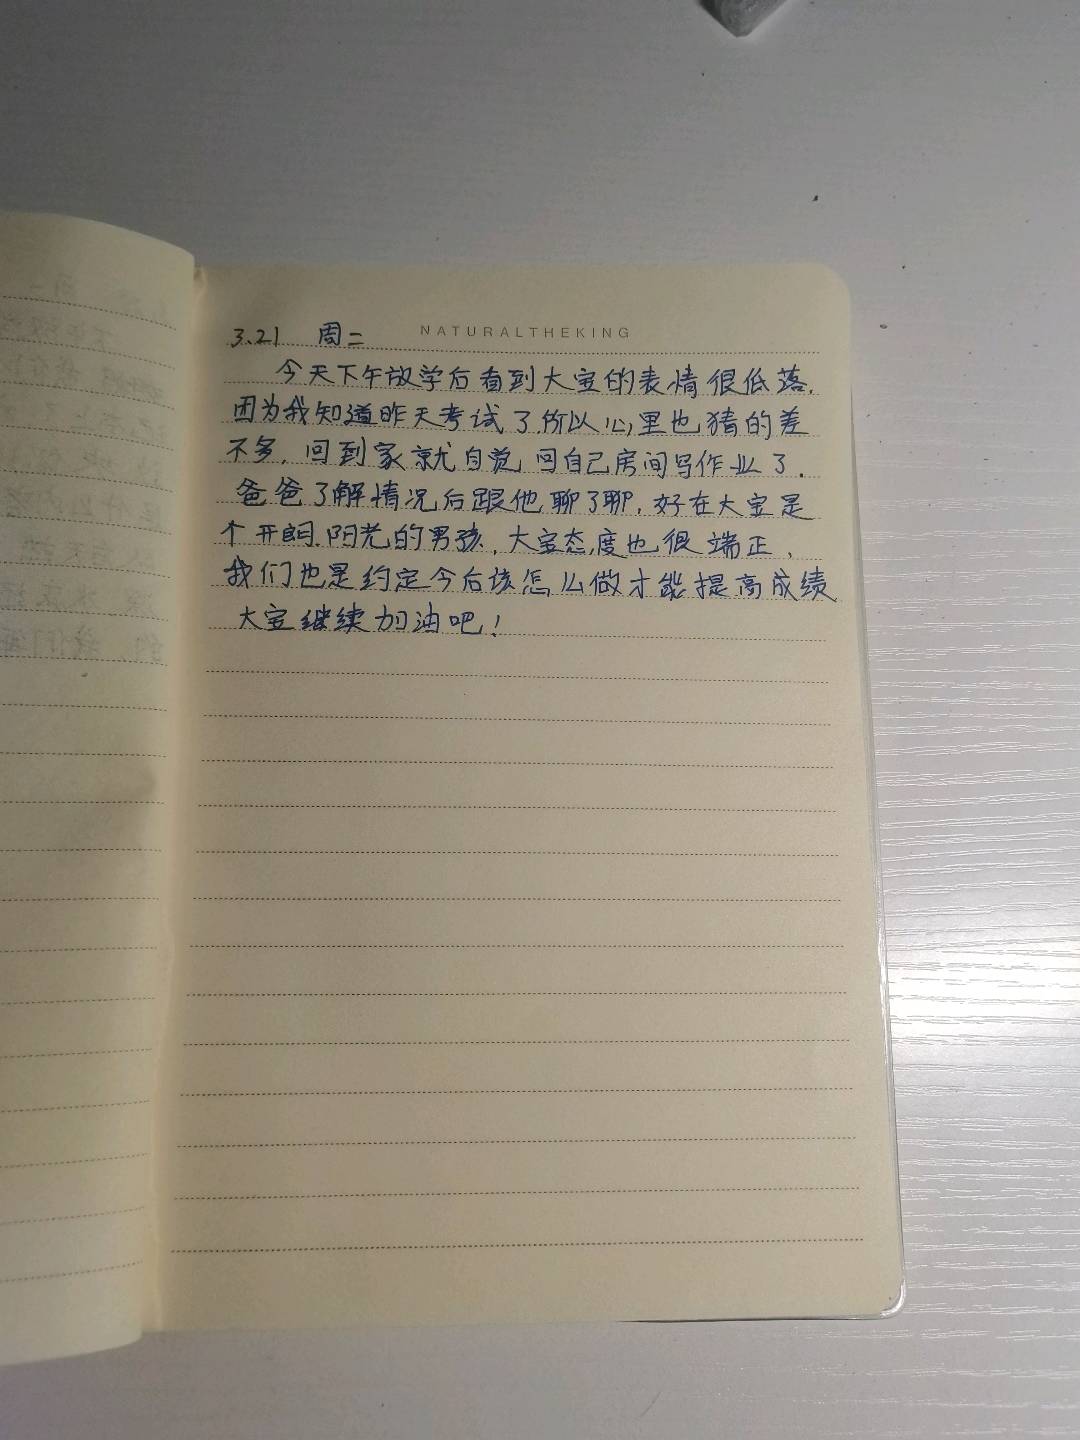 NATURALTHEKING
3.21 周二
今天下午放学后看到大宝的表情很低落.
因为我知道昨天考试了,所以心里也猜的差
不多,回到家就自觉回自己房间写作业了.
爸爸了解情况后跟他聊了聊,好在大宝是
个开朗.阳光的男孩,大宝态度也很端正、
我们也是约定今后该怎么做才能提高成绩
大宝继续加油吧!